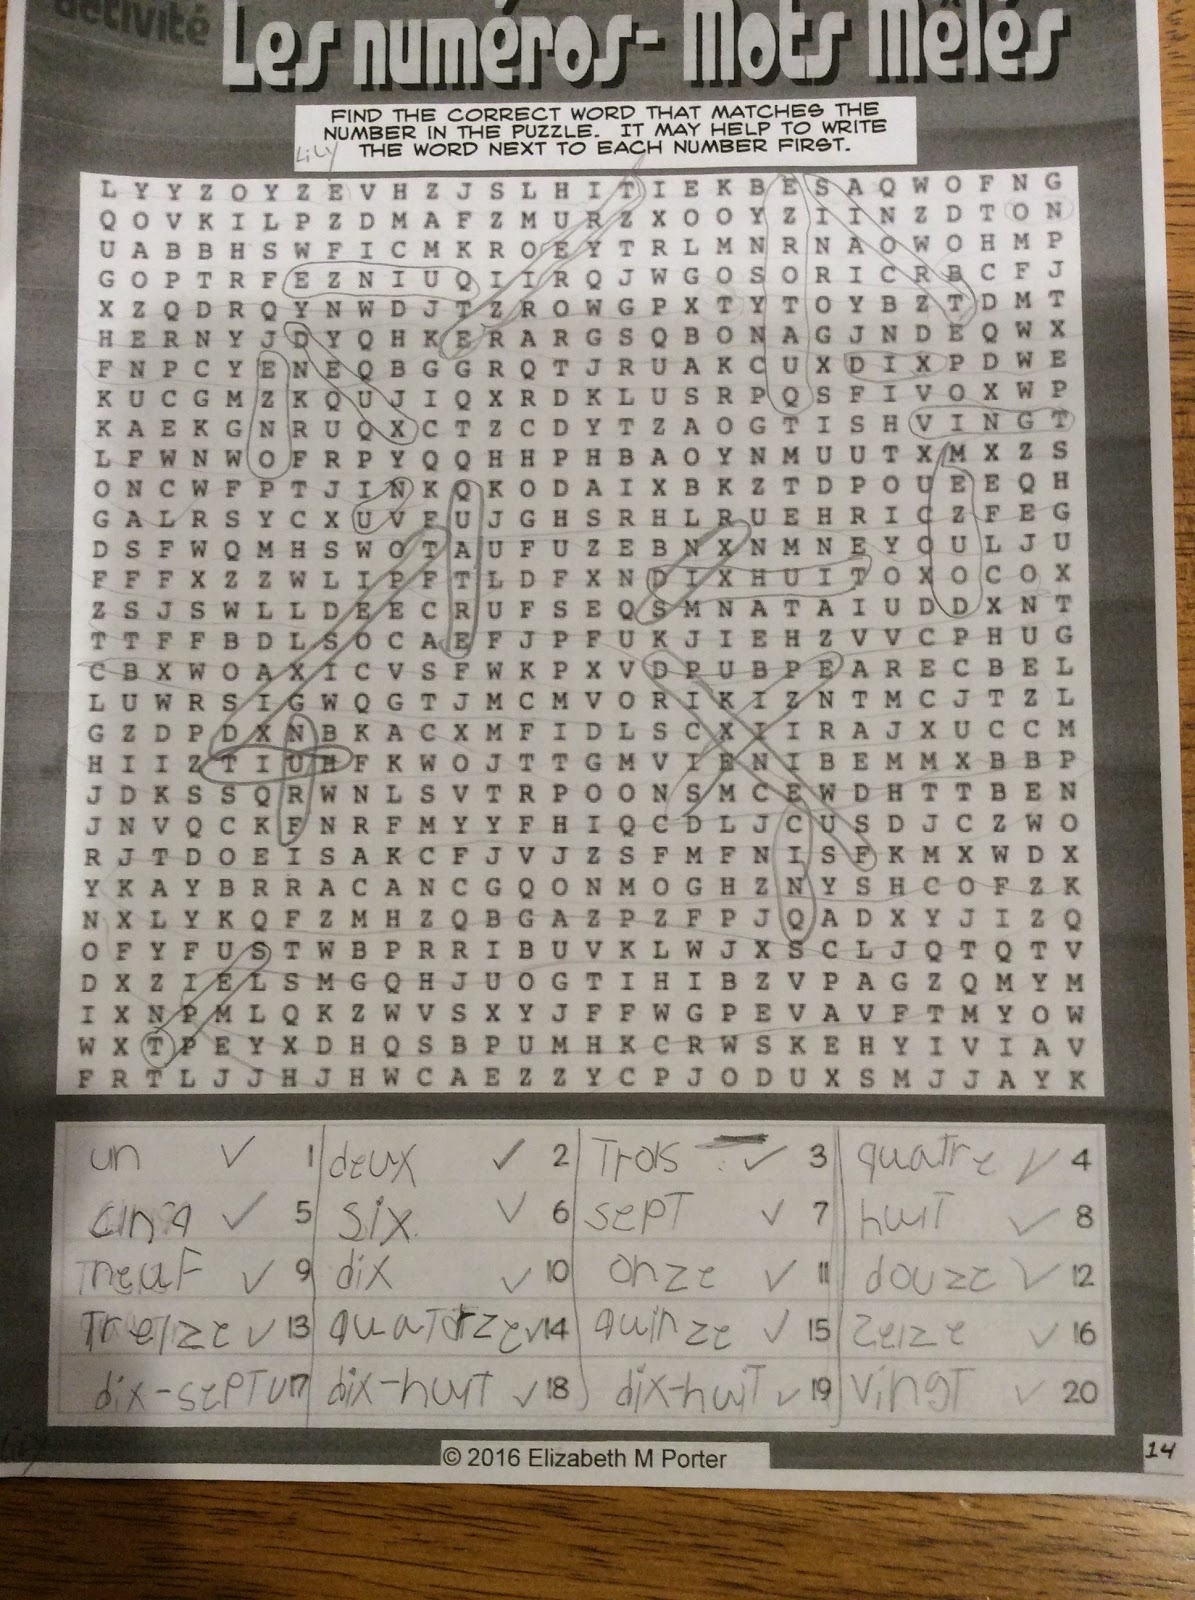 activité
Les numéros- Mots Mêlés
FIND THE CORRECT WORD THAT MATCHES THE
NUMBER IN THE PUZZLE. IT MAY HELP TO WRITE
THE WORD NEXT TO EACH NUMBER FIRST.
Lily
L Y Y Z O Y Z E V H Z J S L H I T I E K B E S A Q W O F N G
Q O V K I L P Z D M A F Z M U R Z X O O Y Z I I N Z D T O N
U A B B H S W F I C M K R O E Y T R L M N R N A O W O H M P
G O P T R F E Z N I U Q I I R Q J W G O S O R I C R B C F J
X Z Q D R Q Y N W D J T Z R O W G P X T Y T O Y B Z T D M T
H E R N Y J D Y Q H K E R A R G S Q B O N A G J N D E Q W X
F N P C Y E N E Q B G G R Q T J R U A K C U X D I X P D W E
K U C G M Z K Q U J I Q X R D K L U S R P Q S F I V O X W P
K A E K G N R U Q X C T Z C D Y T Z A O G T I S H V I N G T
L F W N W O F R P Y Q Q H H P H B A O Y N M U U T X M X Z S
O N C W F P T J I N K Q K O D A I X B K Z T D P O U E E Q H
G A L R S Y C X U V F U J G H S R H L R U E H R I C Z F E G
D S F W Q M H S W O T A U F U Z E B N X N M N E Y O U L J U
F F F X Z Z W L I P F T L D F X N D I X H U I T O X O C O X
Z S J S W L L D E E C R U F S E Q S M N A T A I U D D X N T
T T F F B D L S O C A E F J P F U K J I E H Z V V C P H U G
C B X W O A X I C V S F W K P X V D P U B P E A R E C B E L
L U W R S I G W Q G T J M C M V O R I K I Z N T M C J T Z L
G Z D P D X N B K A C X M F I D L S C X I I R A J X U C C M
H I I Z T I U H F K W O J T T G M V I E N I B E M M X B B P
J D K S S Q R W N L S V T R P O O N S M C E W D H T T B E N
J N V Q C K F N R F M Y Y F H I Q C D L J C U S D J C Z W O
R J T D O E I S A K C F J V J Z S F M F N I S F K M X W D X
Y K A Y B R R A C A N C G Q O N M O G H Z N Y S H C O F Z K
N X L Y K Q F Z M H Z Q B G A Z P Z F P J Q A D X Y J I Z Q
O F Y F U S T W B P R R I B U V K L W J X S C L J Q T Q T V
D X Z I E L S M G Q H J U O G T I H I B Z V P A G Z Q M Y M
I X N P M L Q K Z W V S X Y J F F W G P E V A V F T M Y O W
W X T P E Y X D H Q S B P U M H K C R W S K E H Y I V I A V
F R T L J J H J H W C A E Z Z Y C P J O D U X S M J J A Y K
un ✓ 1 deux ✓ 2 Trois ✓ 3 quatre ✓ 4
cinq ✓ 5 six ✓ 6 sept ✓ 7 huit ✓ 8
neuf ✓ 9 dix ✓ 10 onze ✓ 11 douze ✓ 12
Treize ✓ 13 quatorze ✓ 14 quinze ✓ 15 zeize ✓ 16
dix-sept ✓ 17 dix-huit ✓ 18 dix-huit ✓ 19 vingt ✓ 20
© 2016 Elizabeth M Porter
14